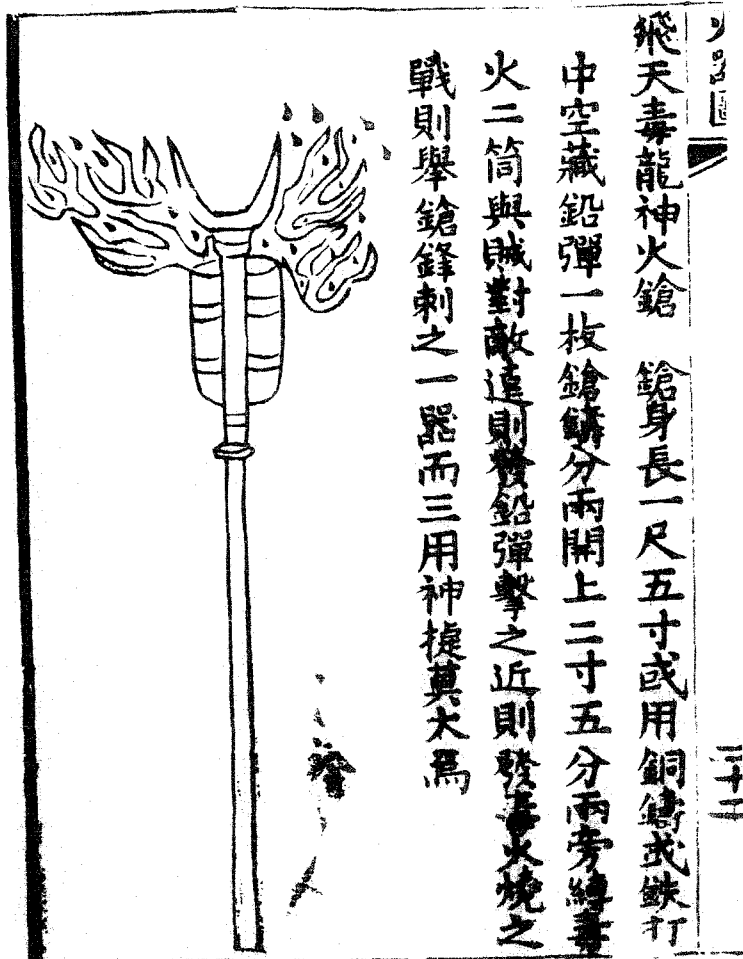 火器圖
飛天毒龍神火鎗　鎗身長一尺五寸或用銅鑄或鉄打
中空藏鉛彈一枚鎗鋒分兩開上二寸五分兩旁縛毒
火二筒與賊對敵遠則發鉛彈擊之近則發毒火燒之
戰則舉鎗鋒刺之一器而三用神捷莫大焉